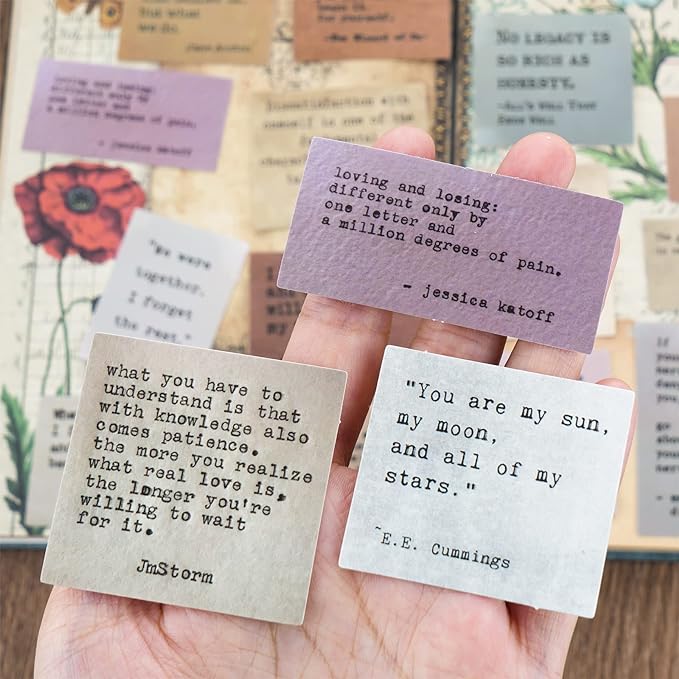 but what
we do.
Jane Austen
NO LEGACY IS
SO RICH AS
HONESTY.
loving and losing:
different only by
one letter and
a million degrees of pain.
- jessica katoff
Dissatisfaction with
oneself is one of
"We were
together.
I forget
the rest."
loving and losing:
different only by
one letter and
a million degrees of pain.
- jessica katoff
what you have to
understand is that
with knowledge also
comes patience.
the more you realize
what real love is,
the longer you're
willing to wait
for it.
JmStorm
"You are my sun,
my moon,
and all of my
stars."
~E.E. Cummings